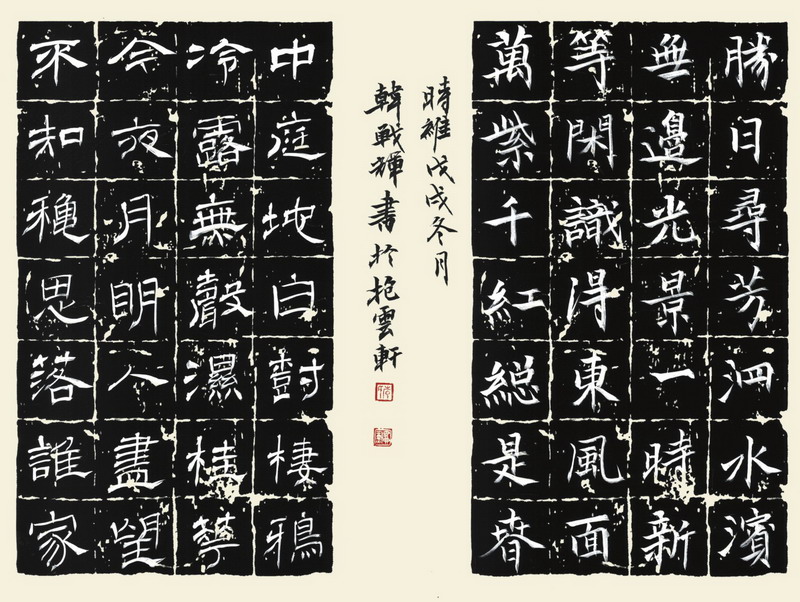 勝日尋芳泗水濱
無邊光景一時新
等閑識得東風面
萬紫千紅總是春
時維戊戌冬月
韓戰輝書於抱雲軒
中庭地白樹棲鴉
冷露無聲濕桂華
今夜月明人盡望
不知穐思落誰家